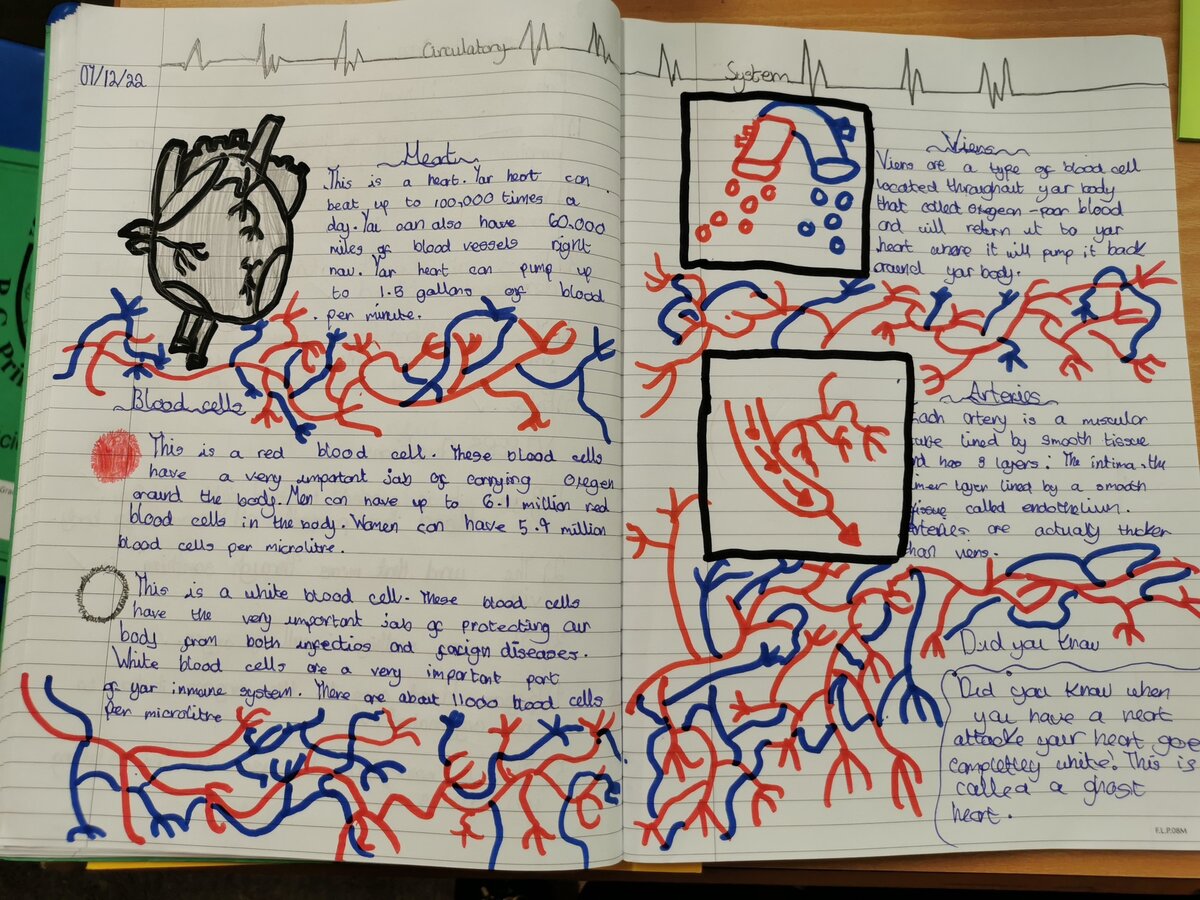 Circulatory
07/12/22
Heart
This is a heart. Yar heart can
beat up to 100,000 times a
day. You can also have 60,000
miles of blood vessels right
now. Yar heart can pump up
to 1.5 gallons of blood
per minute.
Blood cells
This is a red blood cell. These blood cells
have a very important job of carrying oxegen
around the body. Men can have up to 6.1 million red
blood cells in the body. Women can have 5.4 million
blood cells per microlitre.
This is a white blood cell. These blood cells
have the very important job of protecting our
body from both infectios and foreign diseases.
White blood cells are a very important part
of yar inmune system. There are about 11000 blood cells
per microlitre
System
Viens
Viens are a type of blood cell
located throughout yar body
that called oxegean-poor blood
and will return it to yar
heart where it will pump it back
around yar body.
Arteries
Each artery is a muscular
tube lined by smooth tissue
and has 3 layers: The intima, the
inner layer lined by a smooth
tissue called endothelium.
Arteries are actually thicker
than viens.
Did you know
Did you know when
you have a heart
attacke your heart goes
completley white! This is
called a ghost
heart.
F.L.P.08M